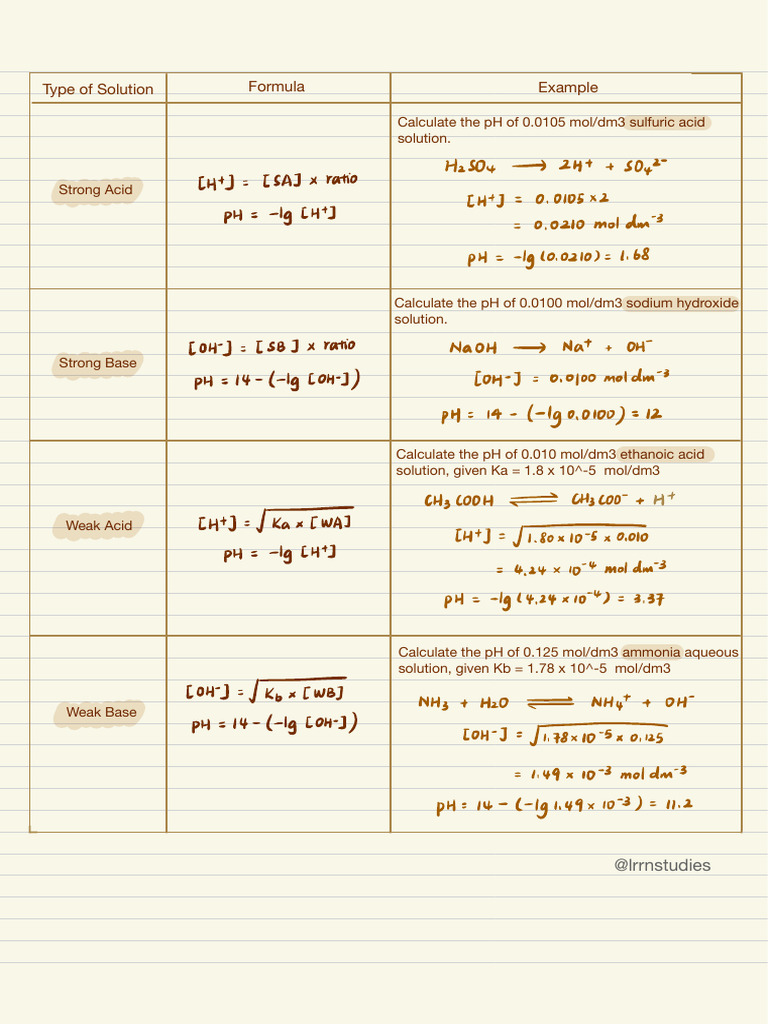 Type of Solution
Formula
Example
Strong Acid
[H+] = [SA] × ratio
pH = -lg [H+]
Calculate the pH of 0.0105 mol/dm3 sulfuric acid
solution.
H₂SO₄ ⟶ 2H⁺ + SO₄²⁻
[H+] = 0.0105 × 2
= 0.0210 mol dm⁻³
pH = -lg (0.0210) = 1.68
Strong Base
[OH-] = [SB] × ratio
pH = 14 - (-lg [OH-])
Calculate the pH of 0.0100 mol/dm3 sodium hydroxide
solution.
NaOH ⟶ Na⁺ + OH⁻
[OH-] = 0.0100 mol dm⁻³
pH = 14 - (-lg 0.0100) = 12
Weak Acid
[H+] = √Ka × [WA]
pH = -lg [H+]
Calculate the pH of 0.010 mol/dm3 ethanoic acid
solution, given Ka = 1.8 x 10^-5 mol/dm3
CH₃COOH ⇌ CH₃COO⁻ + H⁺
[H+] = √1.80 × 10⁻⁵ × 0.010
= 4.24 × 10⁻⁴ mol dm⁻³
pH = -lg (4.24 × 10⁻⁴) = 3.37
Weak Base
[OH-] = √Kb × [WB]
pH = 14 - (-lg [OH-])
Calculate the pH of 0.125 mol/dm3 ammonia aqueous
solution, given Kb = 1.78 x 10^-5 mol/dm3
NH₃ + H₂O ⇌ NH₄⁺ + OH⁻
[OH-] = √1.78 × 10⁻⁵ × 0.125
= 1.49 × 10⁻³ mol dm⁻³
pH = 14 - (-lg 1.49 × 10⁻³) = 11.2
@lrrnstudies